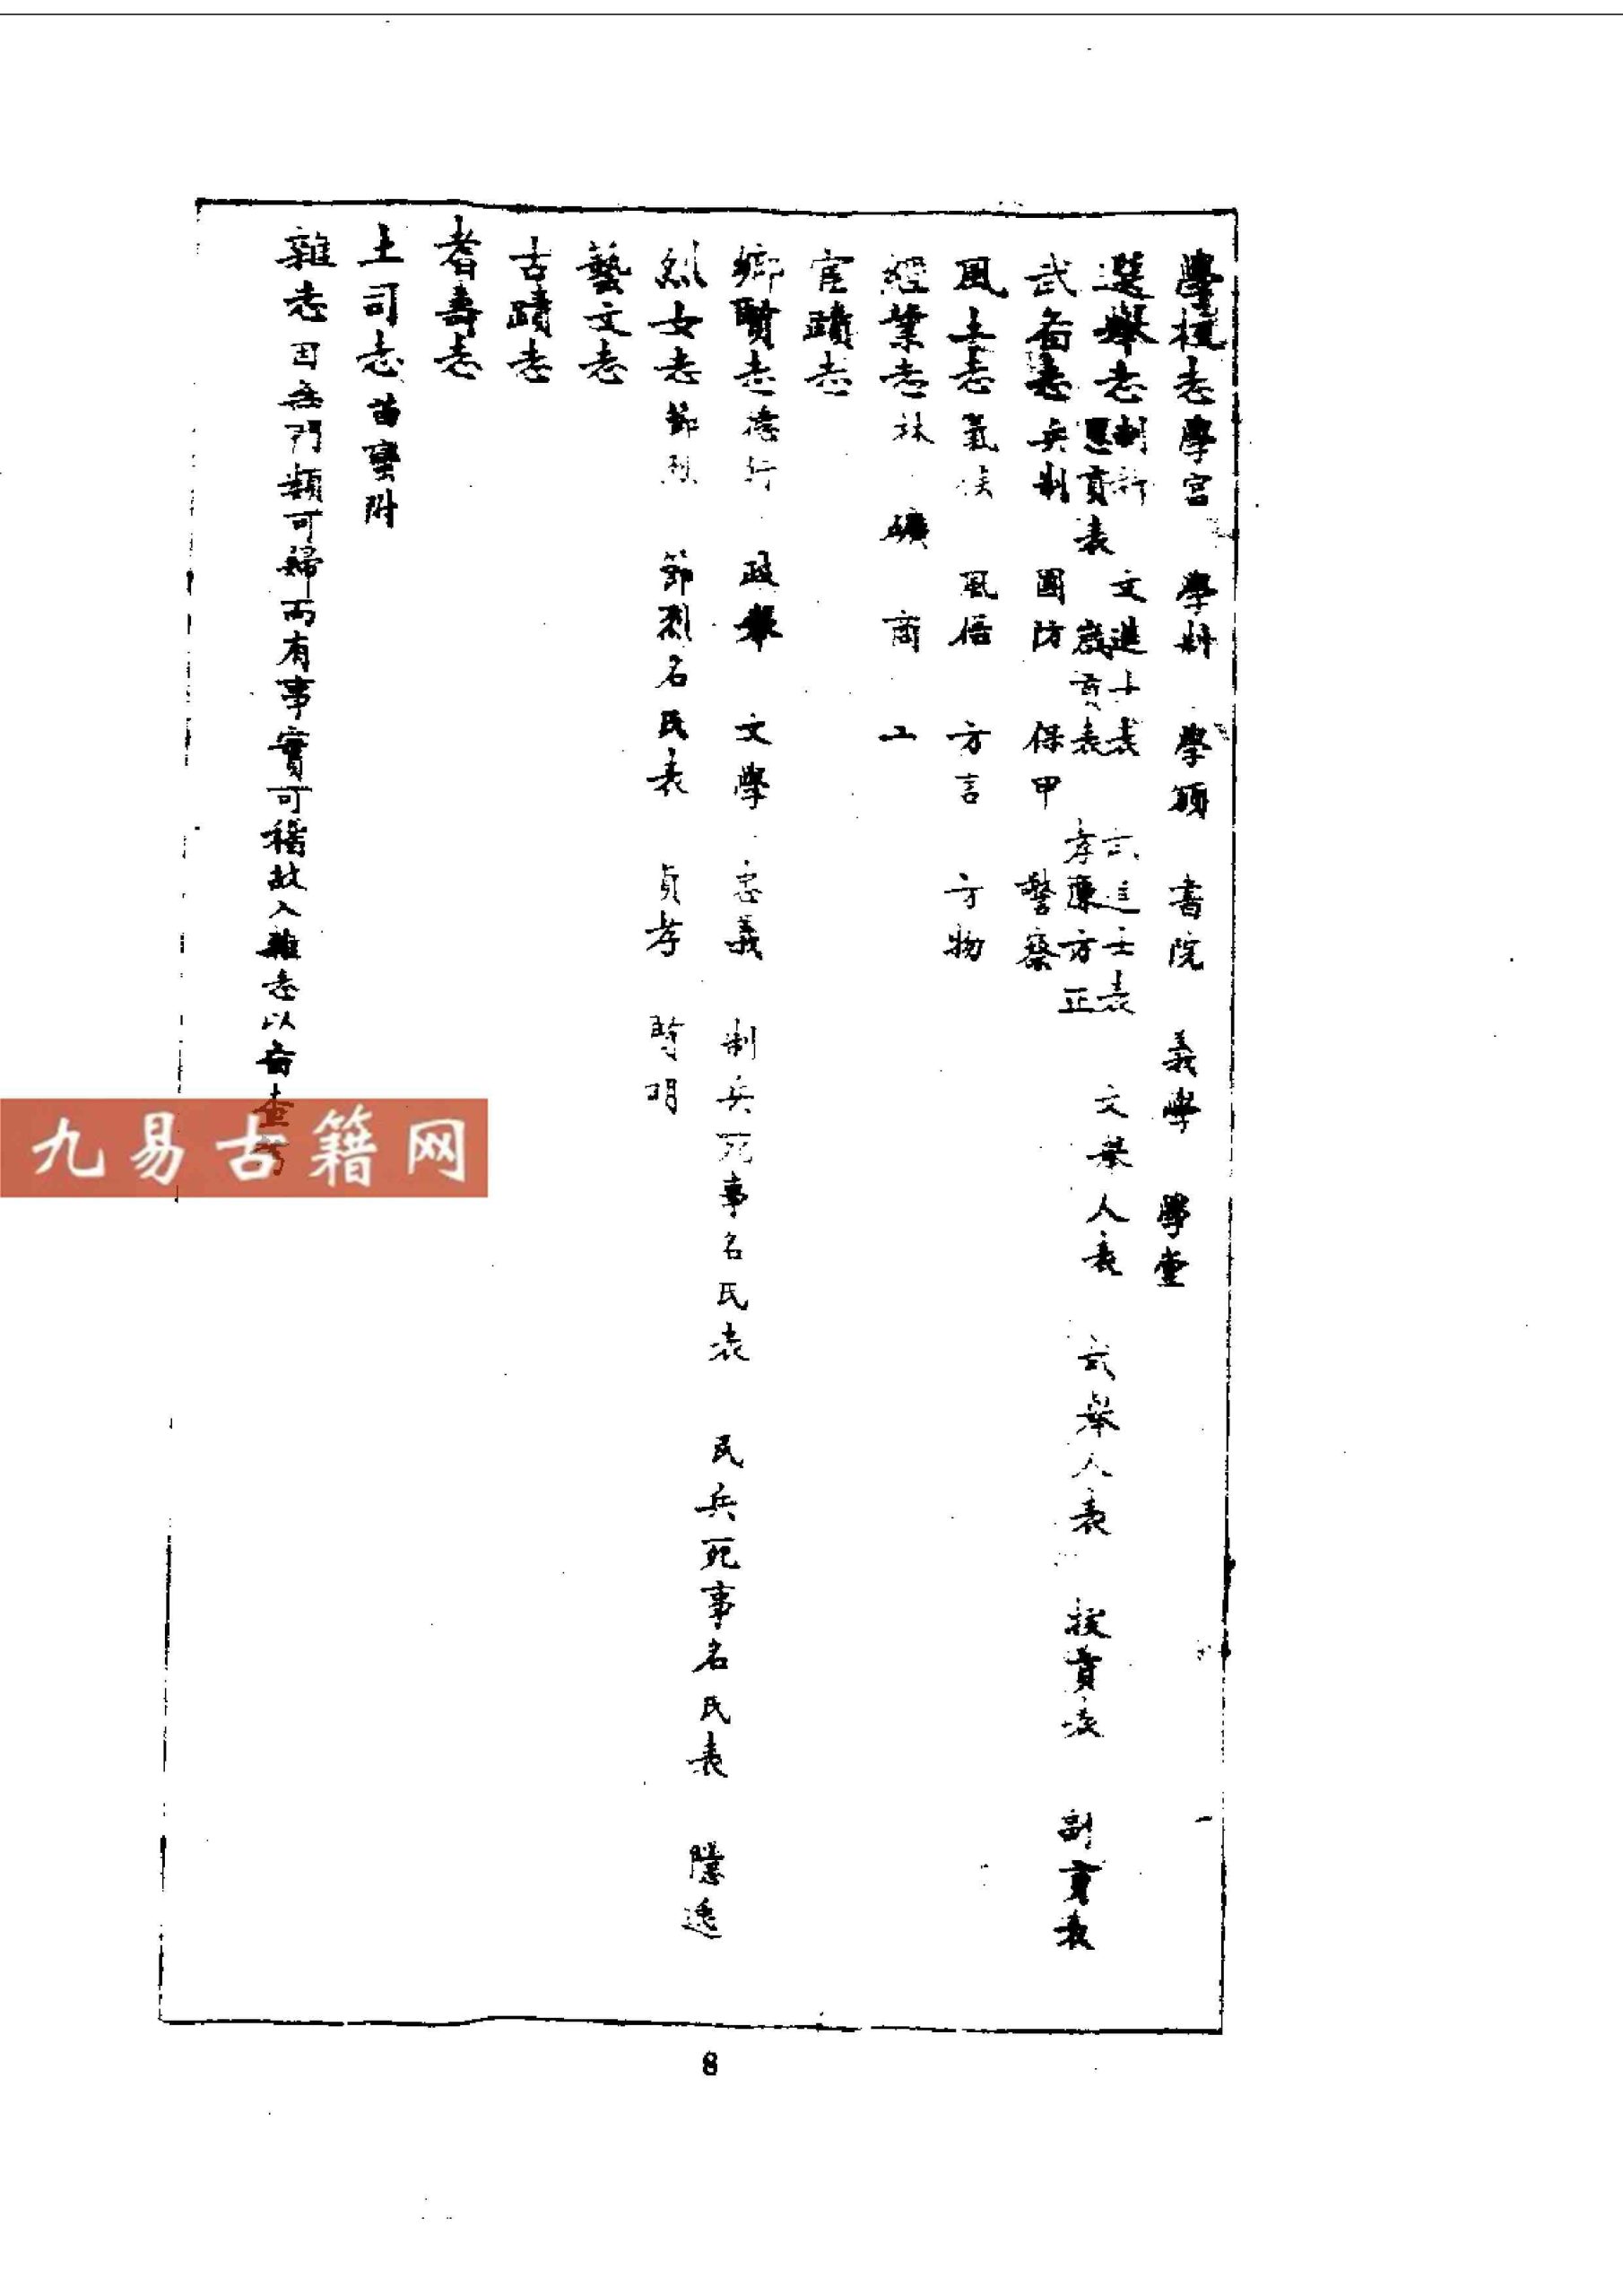 學校志 學宮 學科 學額 書院 義學 學堂
選舉志 制科 文進士表 武進士表 文舉人表 武舉人表 拔貢表 副貢表
恩貢表 歲貢表 孝廉方正
武备志 兵制 團防 保甲 警察
風土志 氣候 風俗 方言 方物
經業志 林 礦 商 工
宦蹟志
鄉賢志 德行 政舉 文學 忠義 制兵死事名氏表 民兵死事名氏表 隱逸
烈女志 節烈 節烈名氏表 貞孝 賢明
藝文志
古蹟志
耆壽志
土司志 苗蠻附
雜志 因無門類可歸而有事實可稽故入雜志以备查
九易古籍网
8